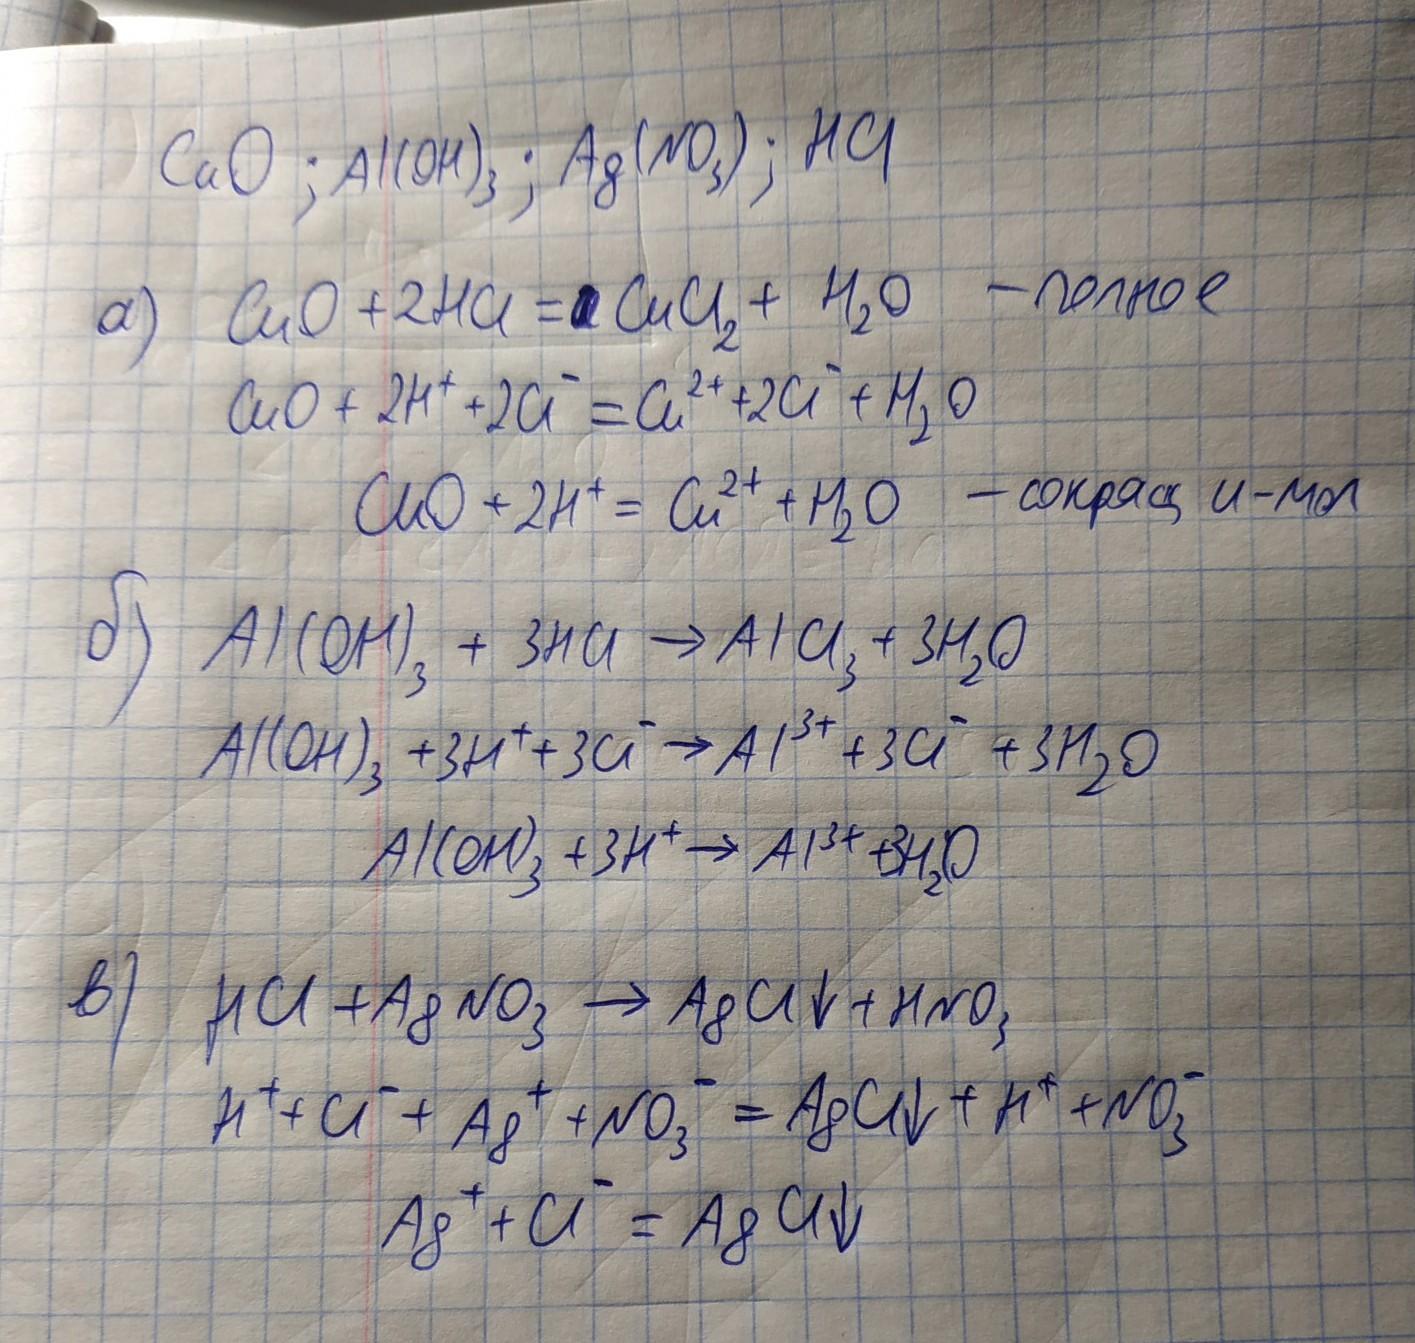 CuO ; Al(OH)₃ ; Ag(NO₃) ; HCl
а) CuO + 2HCl = CuCl₂ + H₂O – полное
CuO + 2H⁺ + 2Cl⁻ = Cu²⁺ + 2Cl⁻ + H₂O
CuO + 2H⁺ = Cu²⁺ + H₂O – сокращ и-мол
б) Al(OH)₃ + 3HCl → AlCl₃ + 3H₂O
Al(OH)₃ + 3H⁺ + 3Cl⁻ → Al³⁺ + 3Cl⁻ + 3H₂O
Al(OH)₃ + 3H⁺ → Al³⁺ + 3H₂O
в) HCl + AgNO₃ → AgCl↓ + HNO₃
H⁺ + Cl⁻ + Ag⁺ + NO₃⁻ = AgCl↓ + H⁺ + NO₃⁻
Ag⁺ + Cl⁻ = AgCl↓